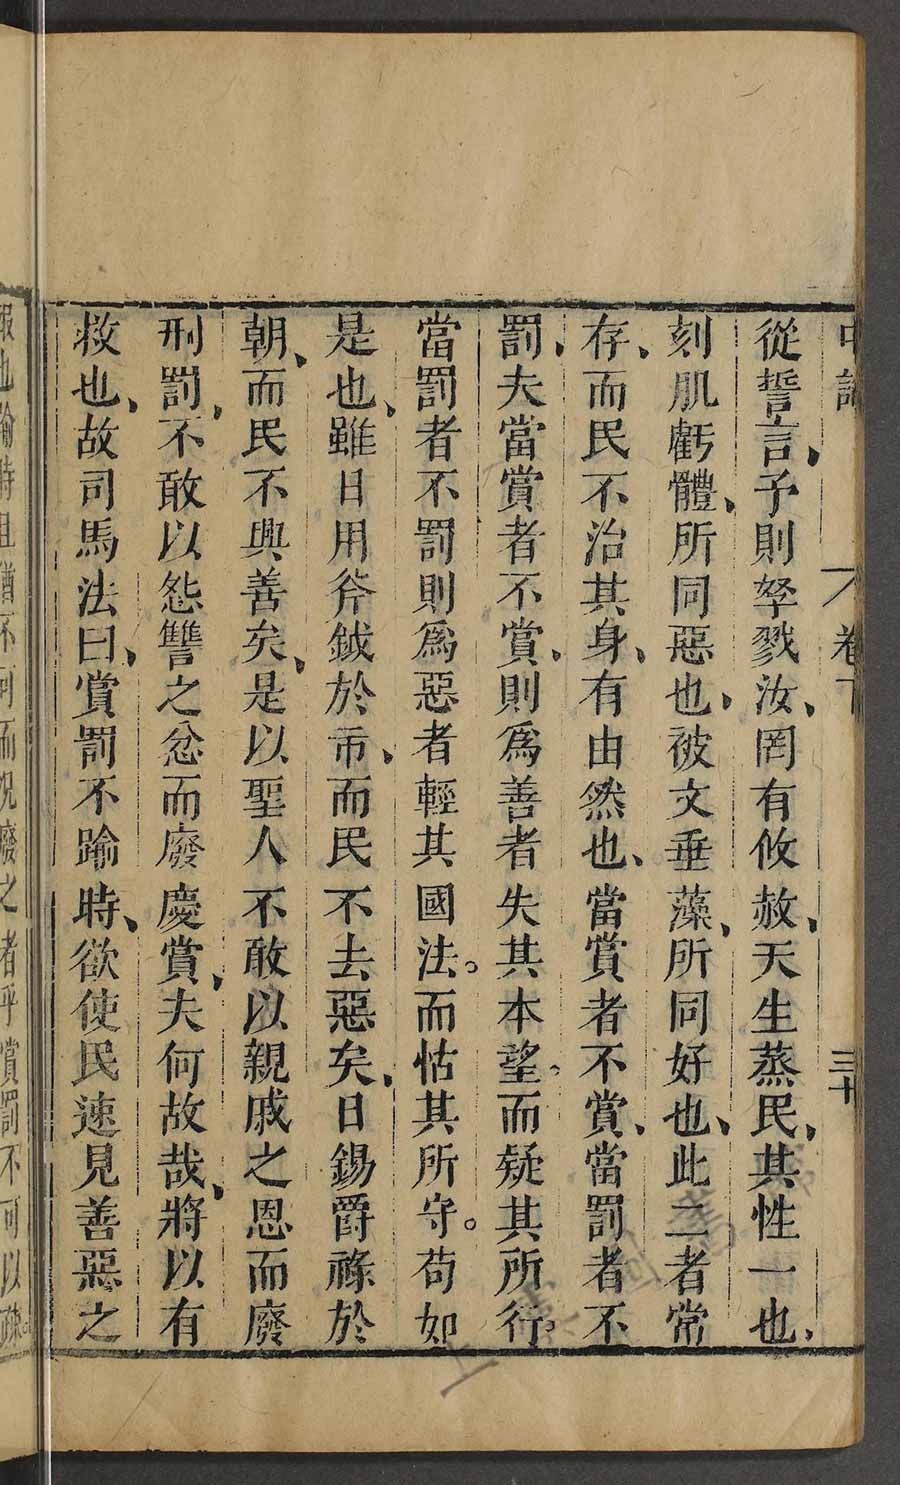 中論 卷下 三十
從誓言、予則孥戮汝、罔有攸赦、天生蒸民、其性一也、
刻肌虧體、所同惡也、被文垂藻、所同好也、此二者常
存、而民不治其身、有由然也、當賞者不賞、當罰者不
罰、夫當賞者不賞、則爲善者失其本望、而疑其所行、
當罰者不罰則爲惡者輕其國法。而怙其所守。苟如
是也、雖日用斧鉞於市、而民不去惡矣、日錫爵祿於
朝、而民不興善矣、是以聖人不敢以親戚之恩而廢
刑罰、不敢以怨讐之忿而廢慶賞、夫何故哉、將以有
救也、故司馬法曰、賞罰不踰時、欲使民速見善惡之
報也踰時且猶不可而況廢之者乎賞罰不可以疎